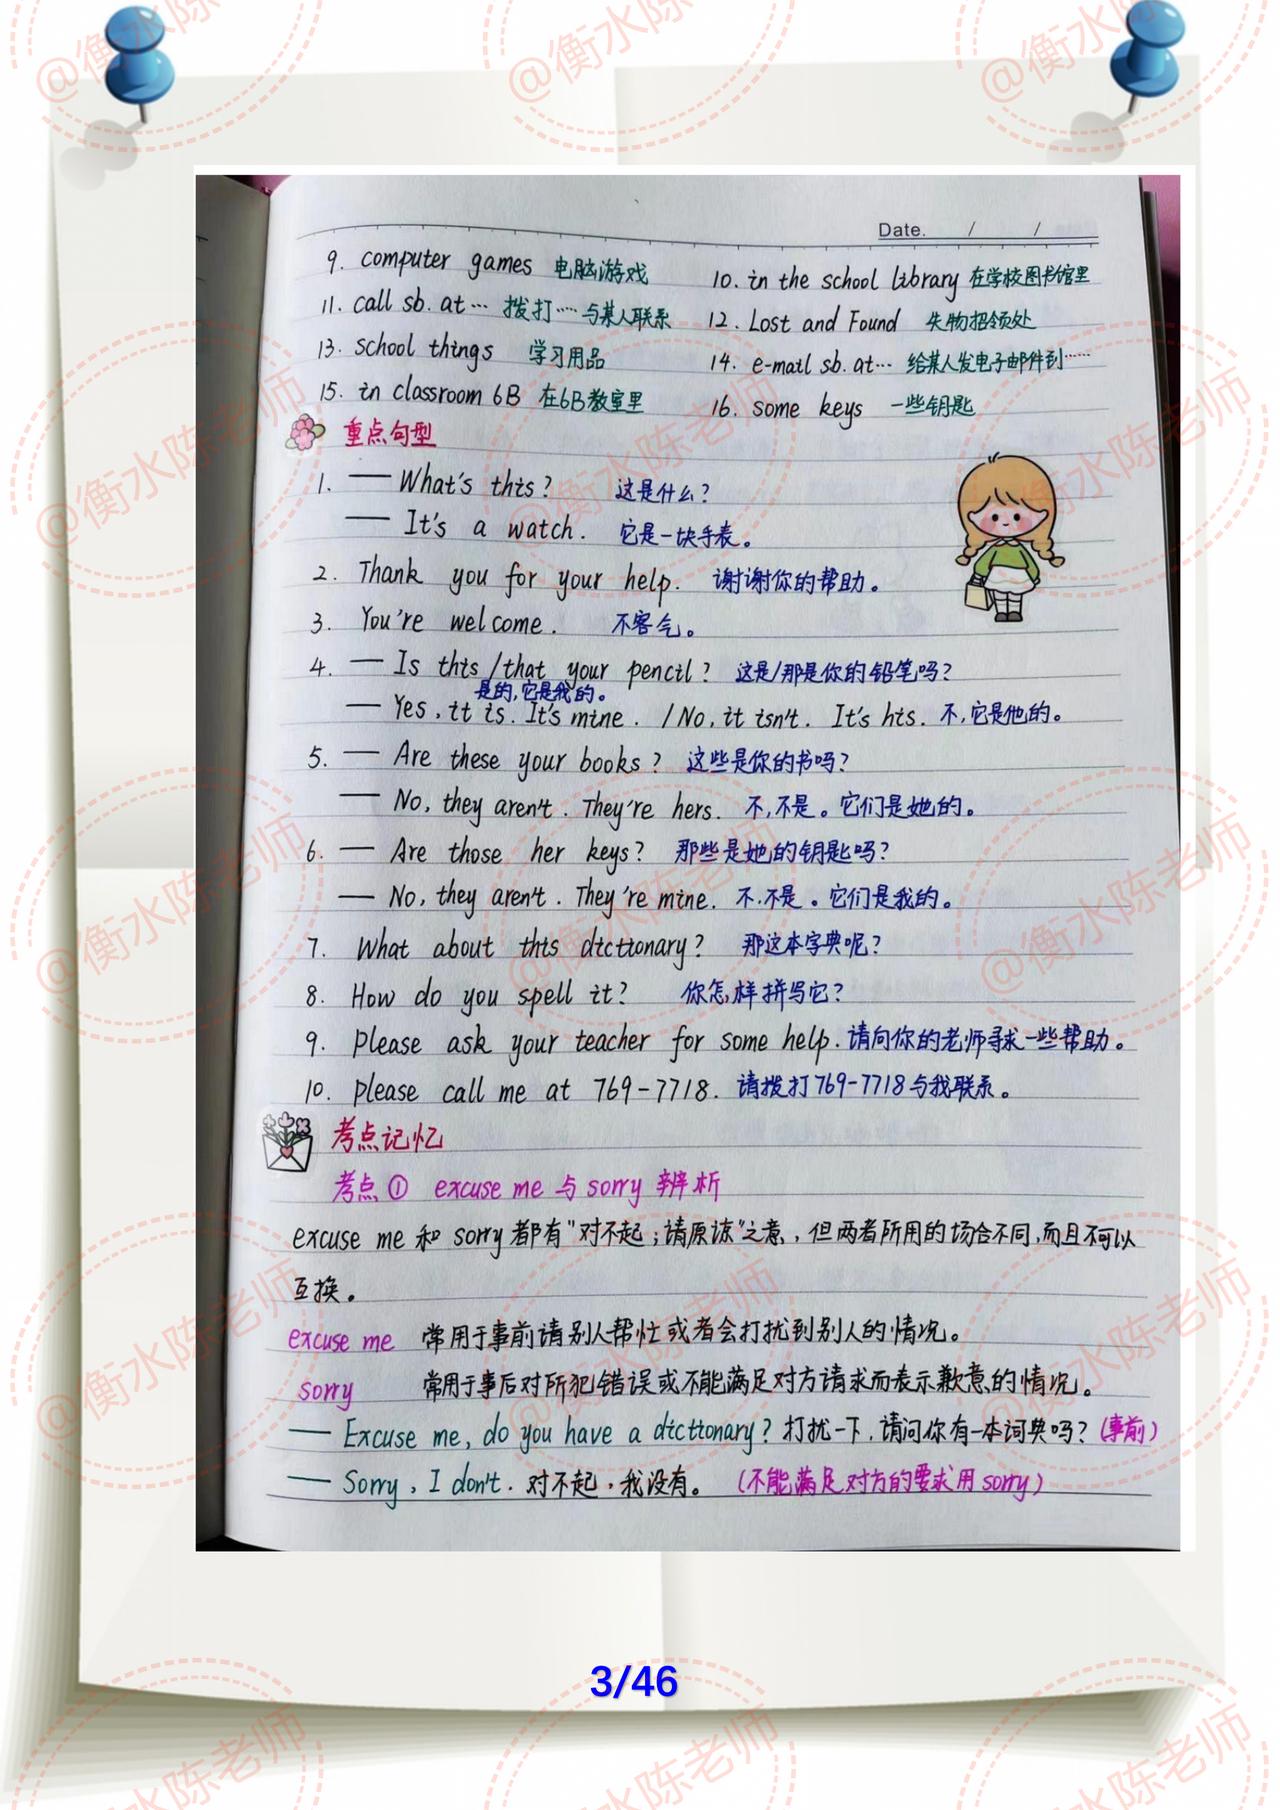 Date. / /
9. computer games 电脑游戏 10. in the school library 在学校图书馆里
11. call sb. at… 拨打……与某人联系 12. Lost and Found 失物招领处
13. school things 学习用品 14. e-mail sb. at… 给某人发电子邮件到……
15. in classroom 6B 在6B教室里 16. some keys 一些钥匙
重点句型
1. — What's this? 这是什么?
— It's a watch. 它是一块手表。
2. Thank you for your help. 谢谢你的帮助。
3. You're welcome. 不客气。
4. — Is this/that your pencil? 这是/那是你的铅笔吗?
是的,它是我的。
— Yes, it is. It's mine. / No, it isn't. It's his. 不,它是他的。
5. — Are these your books? 这些是你的书吗?
— No, they aren't. They're hers. 不,不是。它们是她的。
6. — Are those her keys? 那些是她的钥匙吗?
— No, they aren't. They're mine. 不,不是。它们是我的。
7. What about this dictionary? 那这本字典呢?
8. How do you spell it? 你怎样拼写它?
9. Please ask your teacher for some help. 请向你的老师寻求一些帮助。
10. Please call me at 769-7718. 请拨打769-7718与我联系。
考点记忆
考点① excuse me 与 sorry 辨析
excuse me 和 sorry 都有"对不起;请原谅"之意,但两者所用的场合不同,而且不可以
互换。
excuse me 常用于事前请别人帮忙或者会打扰到别人的情况。
sorry 常用于事后对所犯错误或不能满足对方请求而表示歉意的情况。
— Excuse me, do you have a dictionary? 打扰一下,请问你有一本词典吗?(事前)
— Sorry, I don't. 对不起,我没有。 (不能满足对方的要求用 sorry)
3/46
@衡水陈老师